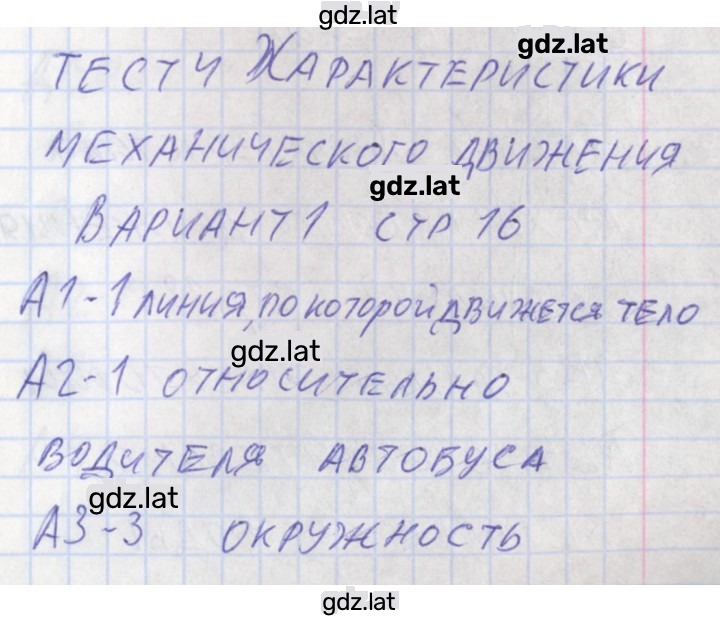 gdz.lat
gdz.lat
ТЕСТ 4 ХАРАКТЕРИСТИКИ
МЕХАНИЧЕСКОГО ДВИЖЕНИЯ
gdz.lat
ВАРИАНТ 1 СТР 16
А1-1 ЛИНИЯ, ПО КОТОРОЙ ДВИЖЕТСЯ ТЕЛО
gdz.lat
А2-1 ОТНОСИТЕЛЬНО
ВОДИТЕЛЯ АВТОБУСА
gdz.lat
А3-3 ОКРУЖНОСТЬ
gdz.lat